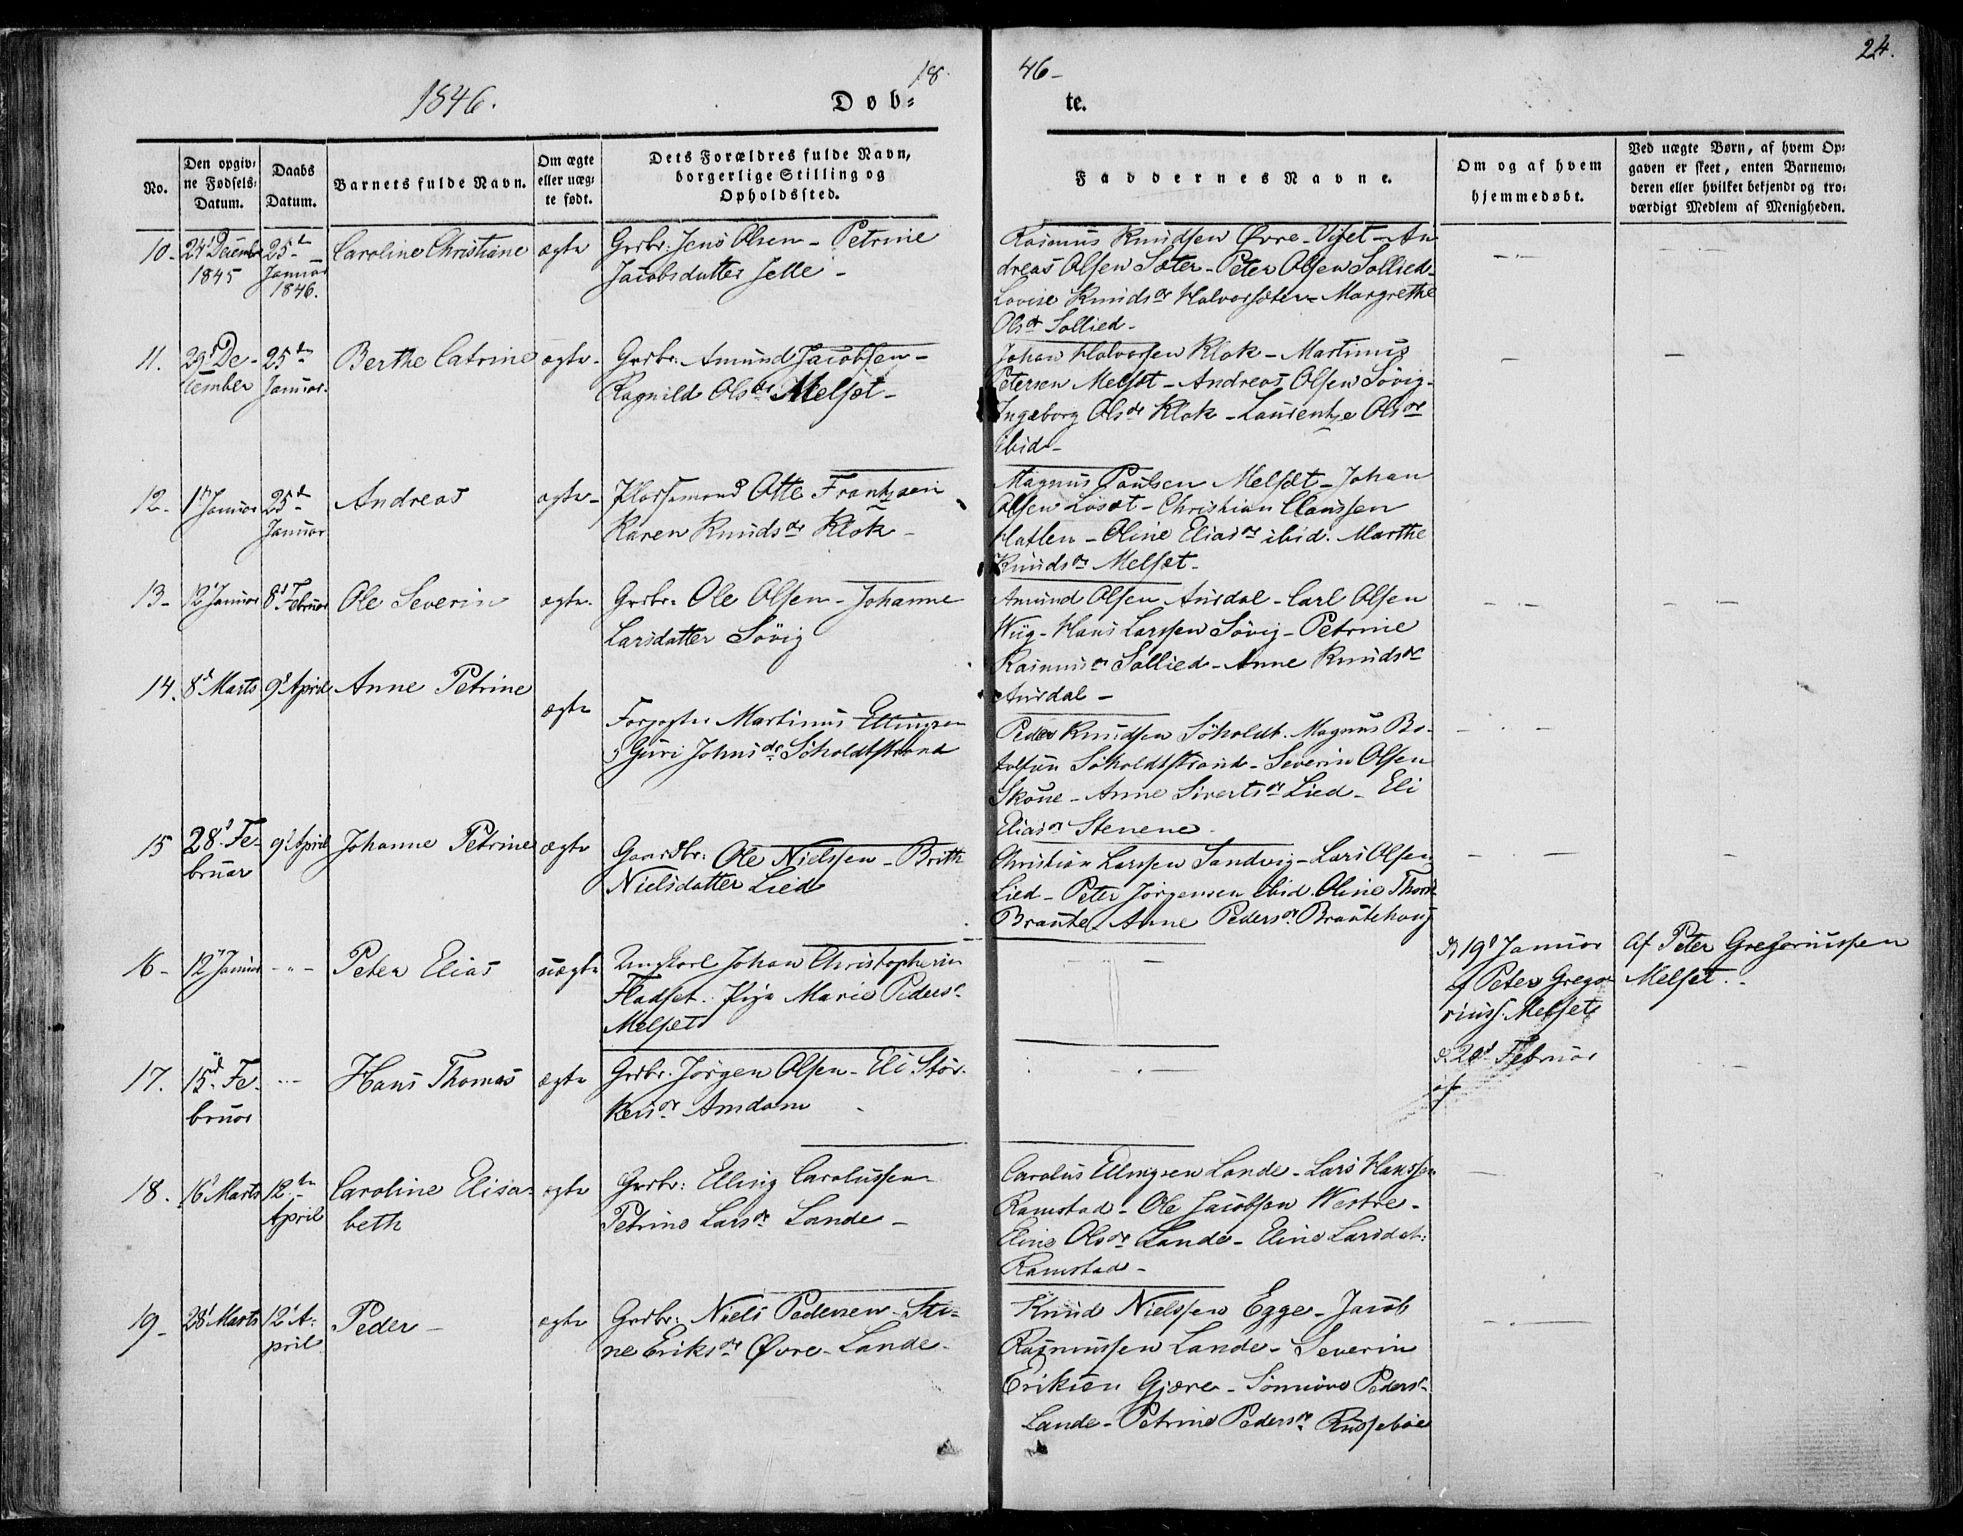 1846.
18
46-
24.
Døb-
te.
No.
Den opgiv-
ne Fødsels-
Datum.
Daabs
Datum.
Barnets fulde Navn.
Om ægte
eller uæg-
te født.
Dets Forældres fulde Navn,
borgerlige Stilling og
Opholdssted.
Faddernes Navne.
Om og af hvem
hjemmedøbt.
Ved uægte Børn, af hvem Op-
gaven er skeet, enten Barnemo-
deren eller hvilket bekjendt og tro-
værdigt Medlem af Menigheden.
10- 24d Decembr
1845
25de
Januar
1846.
Caroline Christiane
ægte
Grbr: Jens Olsen - Petrine
Jacobsdatter Jelle -
Rasmus Knudsen Øvre-Viset - An
dreas Olsen Sæter - Peter Olsen Sollied-
Lovise Knudsdr Halvorsæter - Margrethe
Olsdr Sollied-
11. 29d De-
cember
25de
Januar.
Berthe Catrine
ægte-
Grdbr: Amund Jacobsen -
Ragnild Olsdr Melset -
Johan Halvorsen Klok - Martinus
Petersen Melset - Andreas Olsen Søvig-
Ingeborg Olsdr Klok - Laurentze Olsdr
ibid-
12- 1d Januar
25de
Januar
Andreas
ægte-
Otte Frantzsen
Karen Knudsdr Klok -
Magnus Paulsen Melsæt - Johan
Olsen Løset - Christian Claussen
Hatlen - Oline Eliasdr ibid. Marthe
Knudsdr Melset-
13- 12d Januar
8d Februar
Ole Severin
ægte.
Grdbr: Ole Olsen - Johanne
Larsdatter Søvig
Amund Olsen Aursdal - Carl Olsen
Wiig - Hans Larssen Søvig - Petrine
Rasmusdr Sollied - Anne Knudsdr
Aursdal -
14. 8d Marts
9d April
Anne Petrine
ægte
Forpagter Martinus Ellingsen
Guri Johnsdr Søholdtstrand
Peder Knudsen Søholdt. Magnus Bo-
tolfsen Søholdtstrand - Severin Olsen
Skoue - Anne Sivertsdr Lied - Eli
Eliasdr Stenene.
15 28d Fe-
bruar
9d April
Johanne Petrine
ægte
Gaardbr: Ole Nielssen - Brith
Nielsdatter Lied
Christian Larssen Sandvig - Lars Olsen
Lied - Peter Jørgensen ibid. Oline
Braute. Anne Pedersdr Brautehoug
16- 12d Januar
Peter Elias
uægte
Ungkarl Johan
Fladset. Pige Marie Peders
Melset
d. 19d Januar
af Peter Grego-
riuss. Melset
Af Peter Gregoriussen
Melset.
17. 15d Fe-
bruar
Hans Thomas
ægte
Grdbr. Jørgen Olsen - Eli Stør-
kersdr Amdam
d. 20d Februar
af
18. 16d Marts
12te
April
Caroline Elisa-
beth
ægte
Grdbr: Elling Carolussen
Petrine Larsdr Lande -
Carolus Ellingsen Lande - Lars Hanssen
Ramstad - Ole Jacobsen Westre -
Eline Olsdr Lande - Eline Larsdat:
Ramstad -
19- 28d Marts
12d A-
pril
Peder -
ægte
Grdbr: Niels Pedersen - Sti-
ne Eriksdr Øvre-Lande-
Knud Nielssen Egge - Jacob
Rasmussen Lande - Severin
Eriksen Gjære - Synnøve Peders-
Lande - Petrine Pedersdr